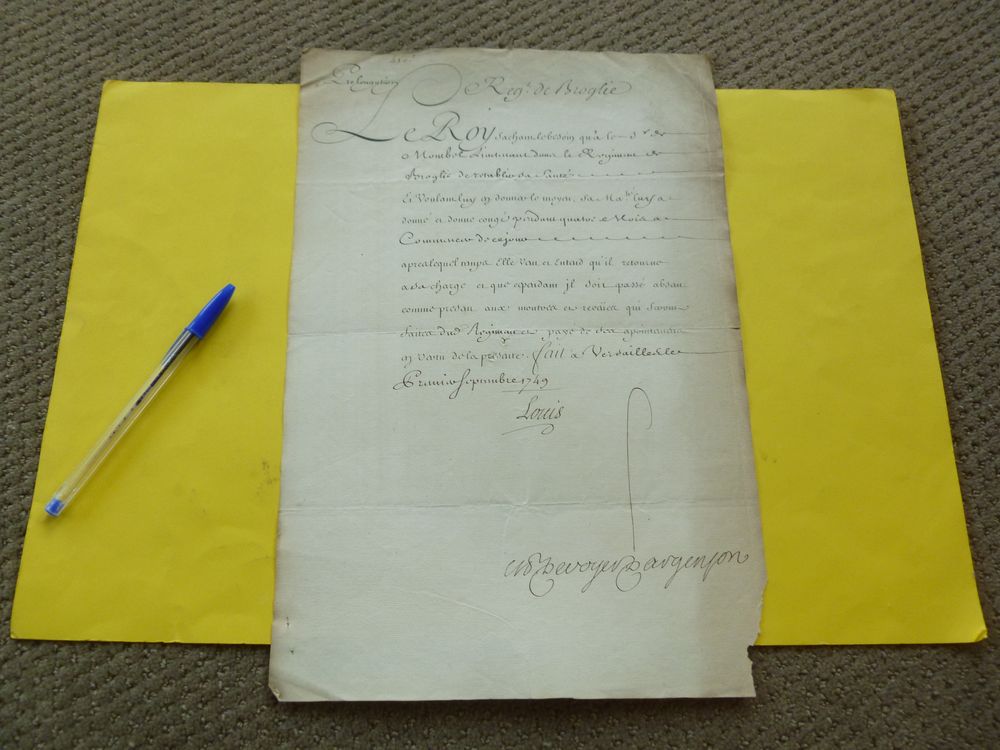 Prolongation
Reg.t de Broglie
Le Roy sachant le besoin qu'a le S.r de
Lieutenant dans le Regiment de
Broglie de retablir sa santé
Et Voulant luy en donner le moyen, sa Ma.té luy a
donné et donne congé pendant quatre Mois a
Commencer de ce jour
apres lequel temps Elle Veut et Entend qu'il retourne
a sa charge et que cependant jl soit passé absent
comme present aux montres et reveües qui seront
faites dud. Regiment et payé de ses apointemens
en vertu de la presente. fait a Versailles le
Premier Septembre 1749
Louis
De voyer D'argenson